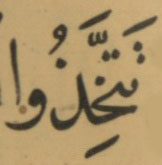 تَتَّخِذُوا